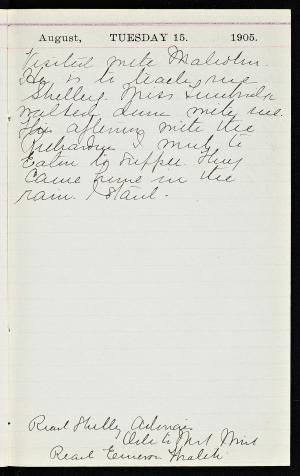 August, TUESDAY 15. 1905.
Visited with Malcolm.
He is to teach me
Shelley. Miss
walked down with me.
The afternoon with the
Richardson I went to
Eaton to supper. They
came home in the
rain. I
Read Shelley Adonais
Ode to West Wind
Read Emerson